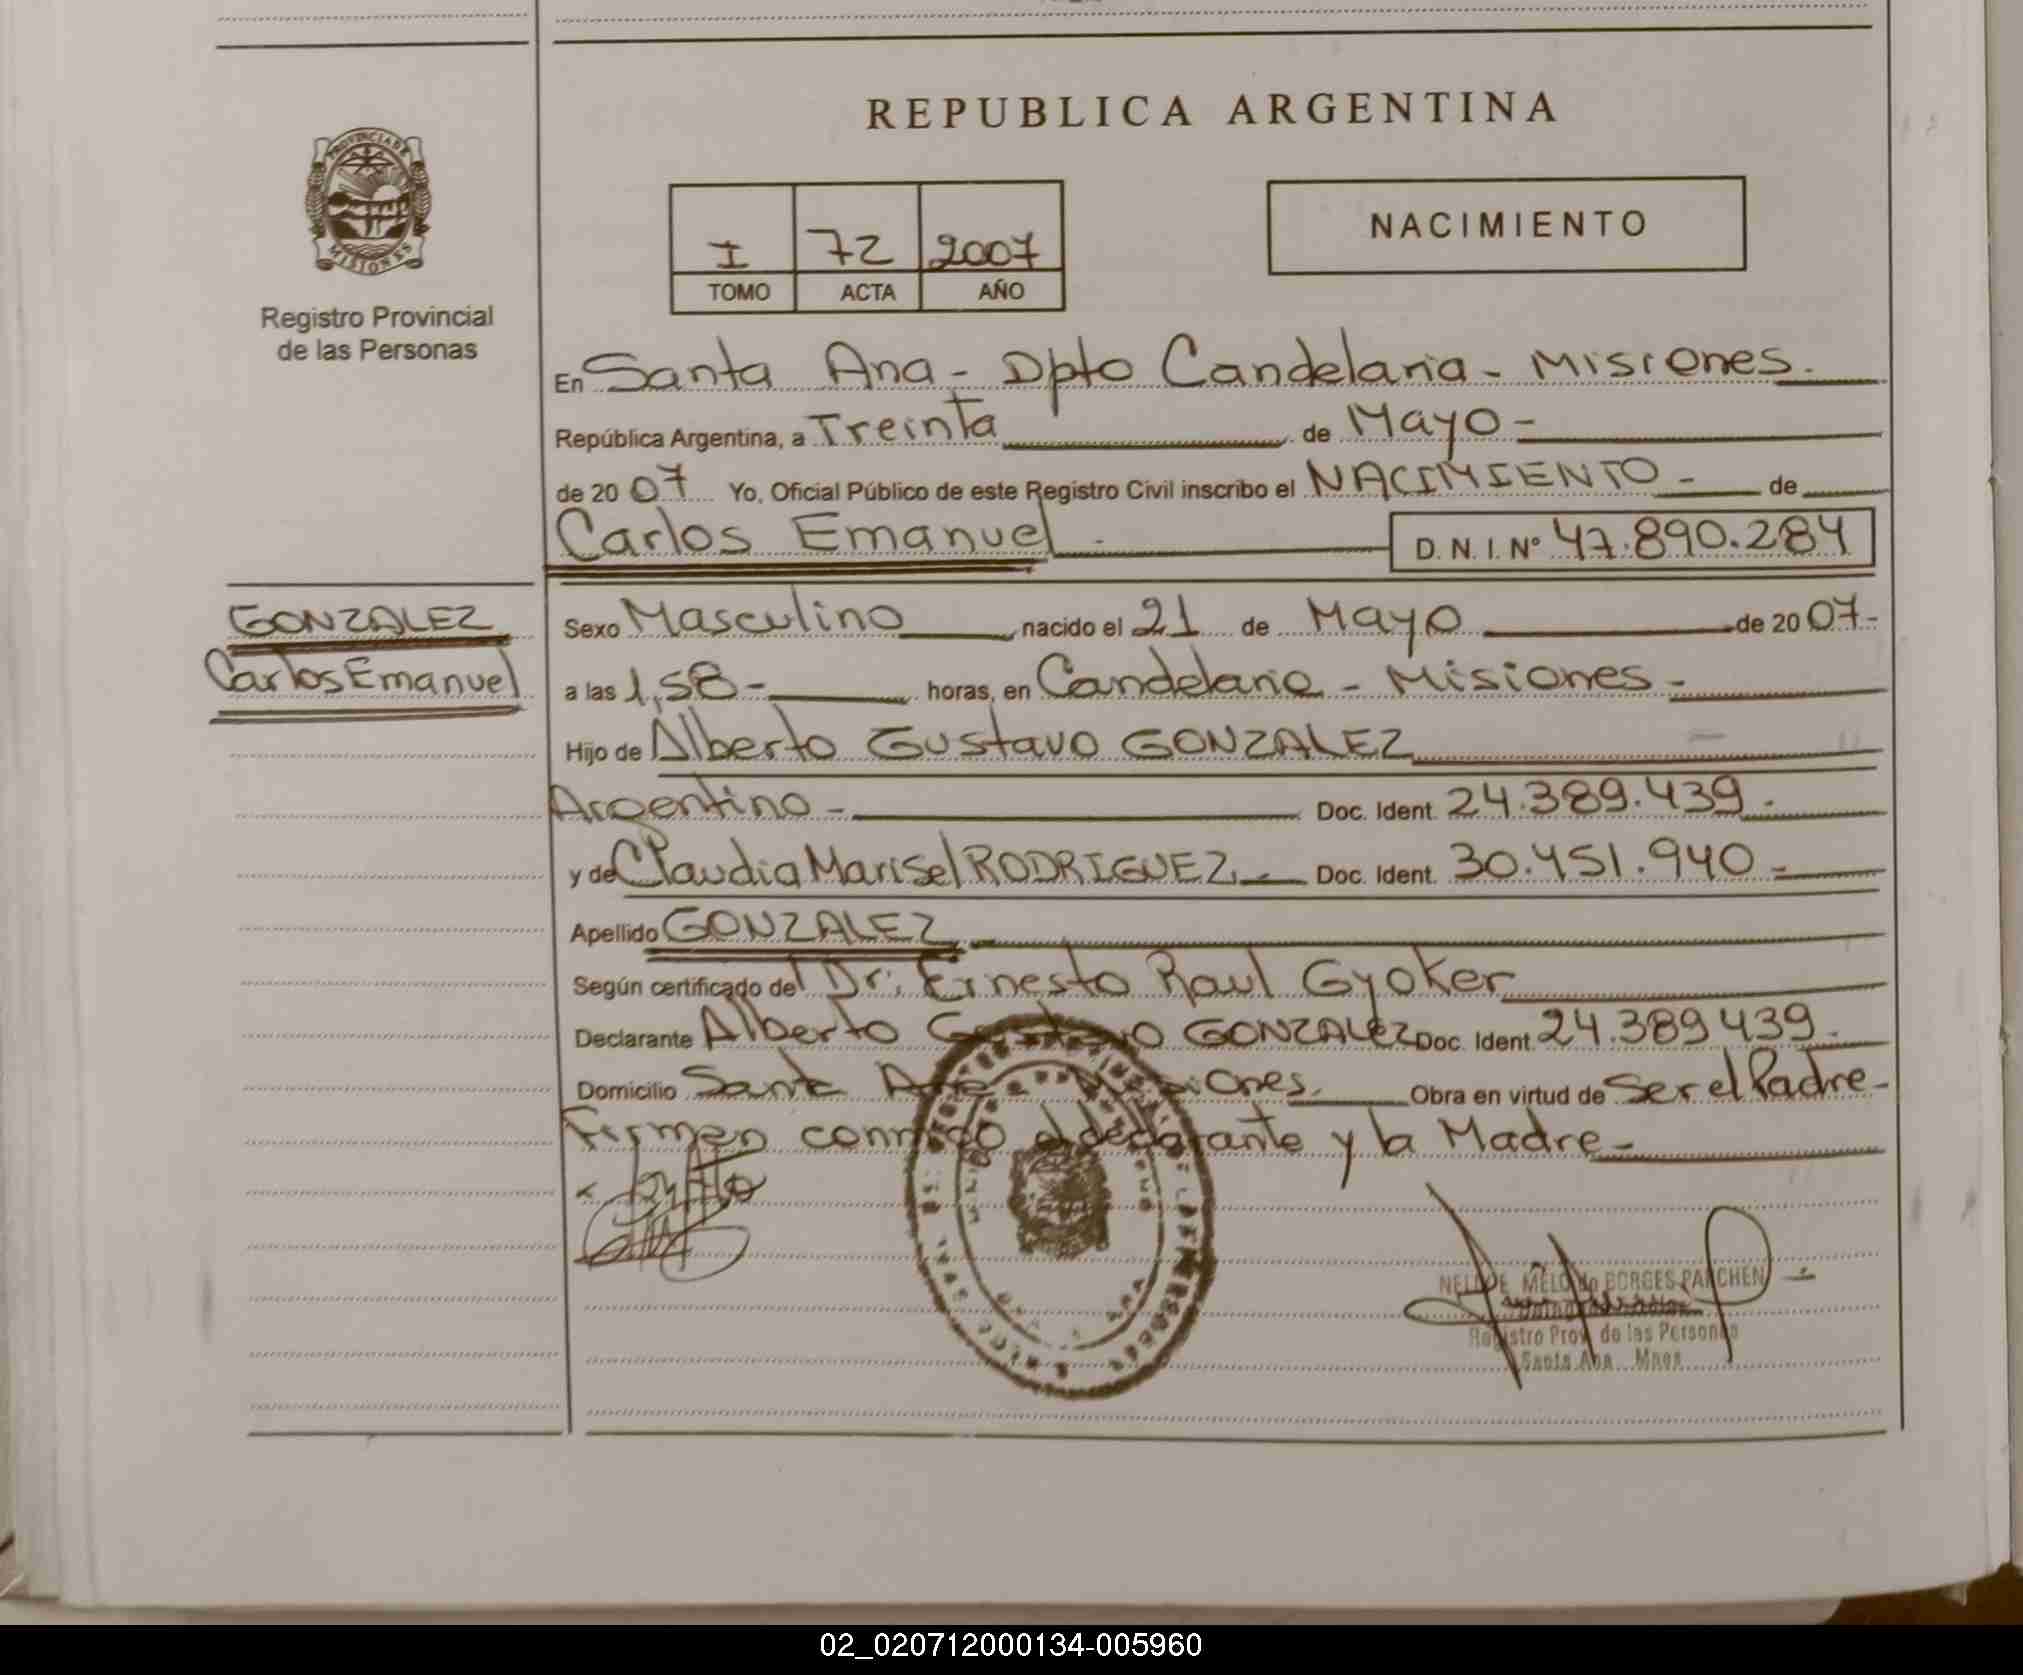 REPUBLICA ARGENTINA
PROVINCIA DE
MISIONES
Registro Provincial
de las Personas
I 72 2007
TOMO ACTA AÑO
NACIMIENTO
En Santa Ana - Dpto Candelaria - Misiones.
República Argentina, a Treinta de Mayo -
de 20 07 Yo, Oficial Público de este Registro Civil inscribo el NACIMIENTO - de
Carlos Emanuel - D. N. I. N° 47.890.284
GONZALEZ
Carlos Emanuel
Sexo Masculino nacido el 21 de Mayo de 20 07-
a las 1,58 - horas, en Candelaria - Misiones -
Hijo de Alberto Gustavo GONZALEZ
Argentino - Doc. Ident. 24.389.439.-
y de Claudia Marisel RODRIGUEZ.- Doc. Ident. 30.451.940 -
Apellido GONZALEZ.
Según certificado del Dr. Ernesto Raul Gyoker
Declarante Alberto Gustavo GONZALEZ Doc. Ident. 24.389 439.
Domicilio Santa Ana - Misiones. Obra en virtud de Ser el Padre -
Firman conmigo el declarante y la Madre -
NELI DE MELO de BORGES PARCHEN
Registro Prov. de las Personas
Santa Ana Mnes
02_020712000134-005960